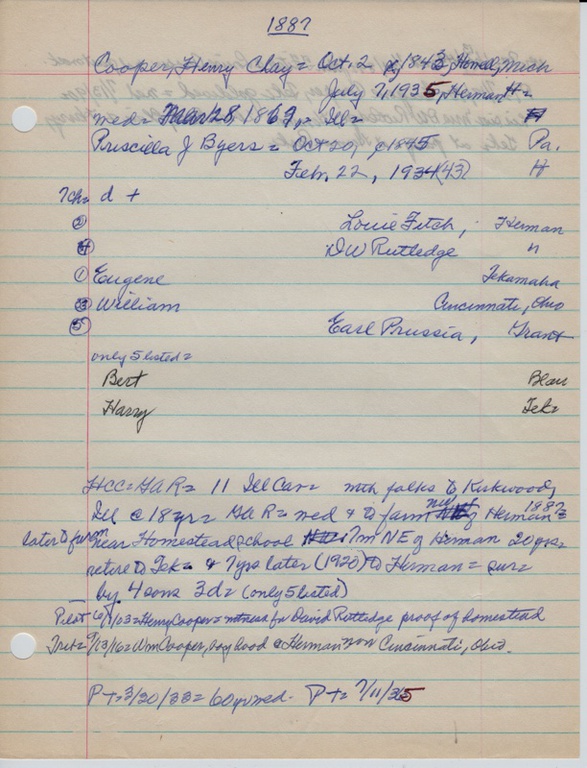 1887
Cooper, Henry Clay = Oct. 2 1843, Homed, Mich
July 7, 1935, Herman H=
med = Mar 28, 1869, = Ill =
Priscilla J Byers = Oct 20, 1845 Pa.
Feb. 22, 1934 (43) H
7ch = d +
② Louie Fitch, Herman
④ DW Rutledge "
① Eugene Tekamaha
③ William Cincinnati, Ohio
⑤ Earl Prussia, Grant
only 5 listed =
Bert Blair
Harry Tek =
HCC = GAR = 11 Ill Cav = with folks to Kirkwood,
Ill @ 18 yr = GAR = med & to farm NW of Herman 1887 =
later to farm near Homestead School 7m NE of Herman 20 yrs =
retire to Tek = & 7 yrs later (1920) to Herman = sur =
by 4 sons 3d = (only 5 listed)
Pilot 6/1/03 = Henry Cooper = witness for David Rutledge proof of homestead
Trib = 9/13/16 = Wm Cooper, boyhood @ Herman now Cincinnati, Ohio.
PT = 3/30/33 = 60 yr med. PT = 7/11/35